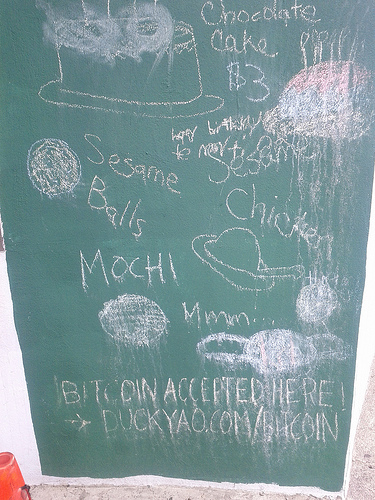 Chocolate
Cake
$3
happy birthday
to me
Sesame
Sesame
Balls
Chicken
MOCHI
Mmm!...
BITCOIN ACCEPTED HERE!
→ DUCKYAO.COM/BITCOIN